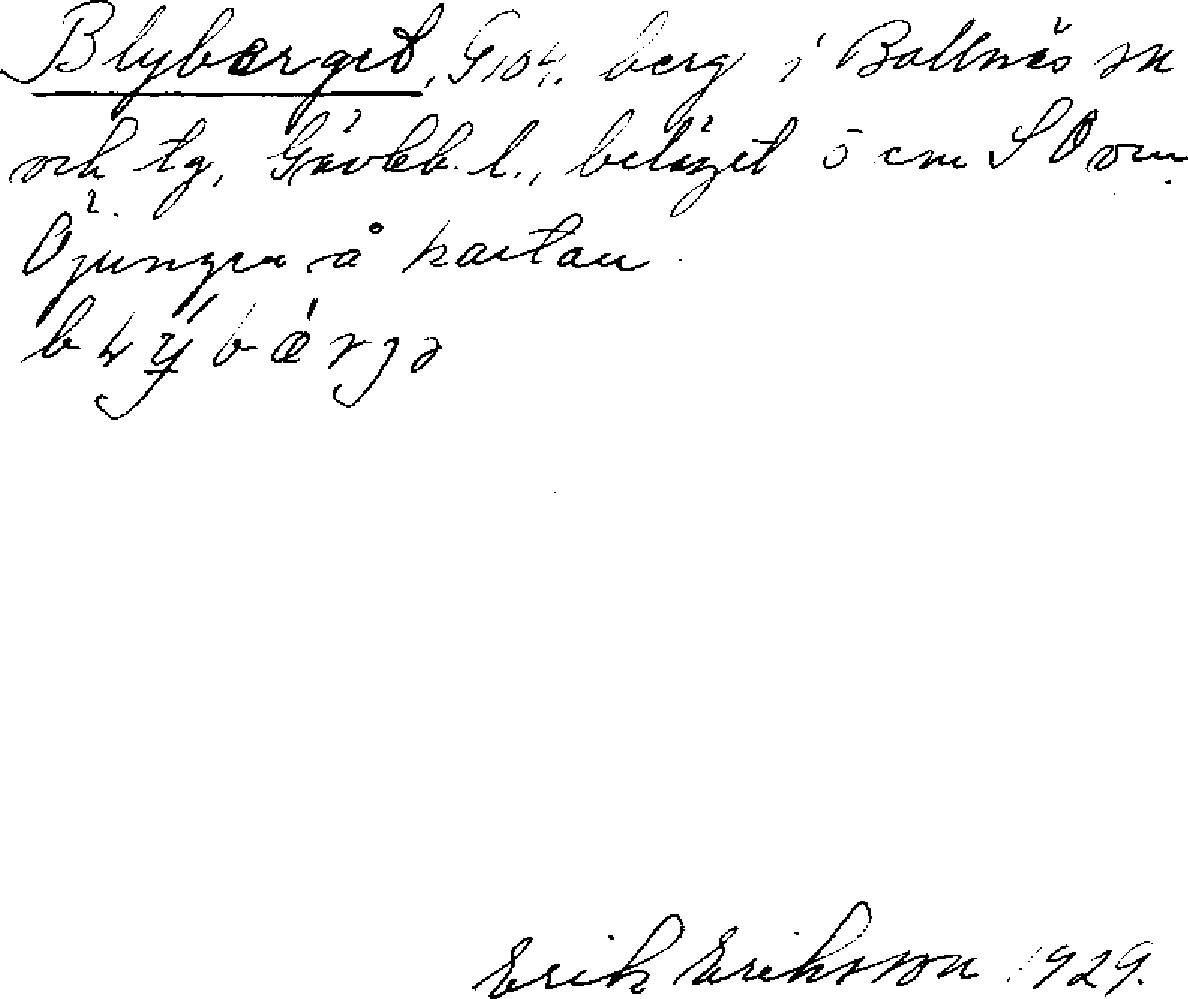 Blyberget, G 104, berg i Bollnäs sn
och tg, Gävleb. l., beläget 5 cm SO om
Öjungen å kartan.
Erik Eriksson 1929.